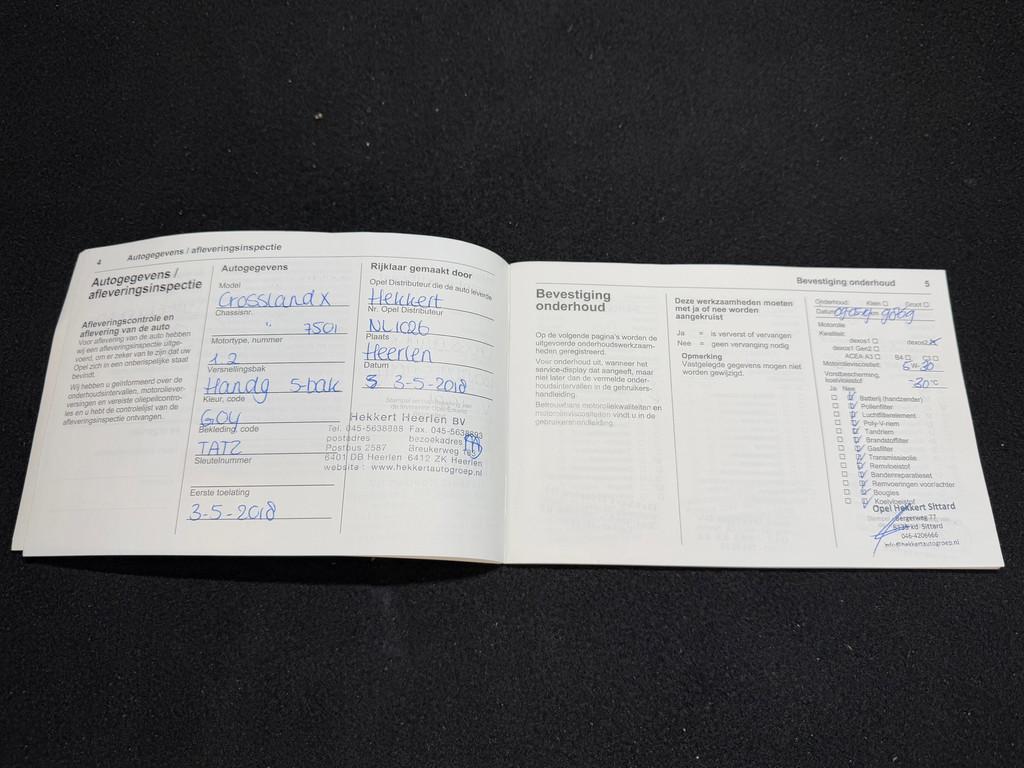 4 Autogegevens / afleveringsinspectie
Autogegevens /
afleveringsinspectie
Afleveringscontrole en
aflevering van de auto
Voor aflevering van de auto hebben
wij een afleveringsinspectie uitge-
voerd, om er zeker van te zijn dat uw
Opel zich in een onberispelijke staat
bevindt.
Wij hebben u geïnformeerd over de
onderhoudsintervallen, motoroliever-
versingen en vereiste oliepeilcontro-
les en u hebt de controlelijst van de
afleveringsinspectie ontvangen.
Autogegevens
Model
Crossland X
Chassisnr.
" 7501
Motortype, nummer
1.2
Versnellingsbak
Handg 5-bak
Kleur, code
GOY
Bekleding, code
TATZ
Sleutelnummer
Eerste toelating
3-5-2018
Rijklaar gemaakt door
Opel Distributeur die de auto leverde
Hekkert
Nr. Opel Distributeur
NL1C26
Plaats
Heerlen
Datum
3-5-2018
Hekkert Heerlen BV
Tel. 045-5638888 Fax. 045-5638893
postadres bezoekadres
Postbus 2587 Breukerweg
6401 DB Heerlen 6412 ZK Heerlen
website: www.hekkertautogroep.nl
Bevestiging onderhoud 5
Bevestiging
onderhoud
Op de volgende pagina's worden de
uitgevoerde onderhoudswerkzaam-
heden geregistreerd.
Voer onderhoud uit, wanneer het
service-display dat aangeeft, maar
niet later dan de vermelde onder-
houdsintervallen in de gebruikers-
handleiding.
Betrouwbare motoroliekwaliteiten en
motorolieviscositeiten vindt u in de
gebruikershandleiding.
Deze werkzaamheden moeten
met ja of nee worden
aangekruist
Ja = is ververst of vervangen
Nee = geen vervanging nodig
Opmerking
Vastgelegde gegevens mogen niet
worden gewijzigd.
Onderhoud: Klein ☐ Groot ☐
Datum km
Motorolie
Kwaliteit:
dexos1 ☐ dexos2 X
dexos1 Gen2 ☐
ACEA-A3 ☐ B4 ☐ C3 ☐
Motorolieviscositeit: 5 W- 30
Vorstbescherming,
koelvloeistof -30 °C
Ja Nee
Batterij (handzender)
Pollenfilter
Luchtfilterelement
Poly-V-riem
Tandriem
Brandstoffilter
Gasfilter
Transmissieolie
Remvloeistof
Bandenreparatieset
Remvoeringen voor/achter
Bougies
Koelvloeistof
Opel Hekkert Sittard
Bergerweg 77
6135 kd Sittard
046-4206666
info@hekkertautogroep.nl